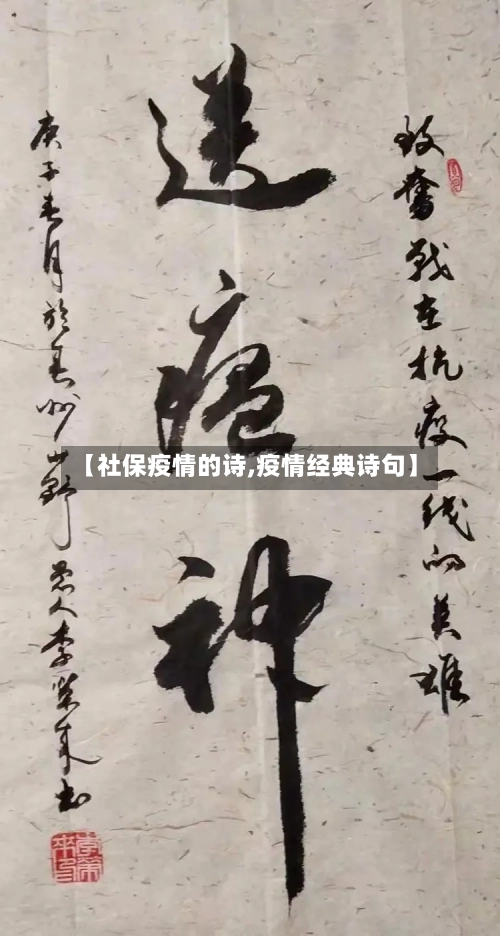 致奋战在抗疫一线的英雄
送瘟神
庚子春月於春州山野愚人李荣来书
【社保疫情的诗,疫情经典诗句】